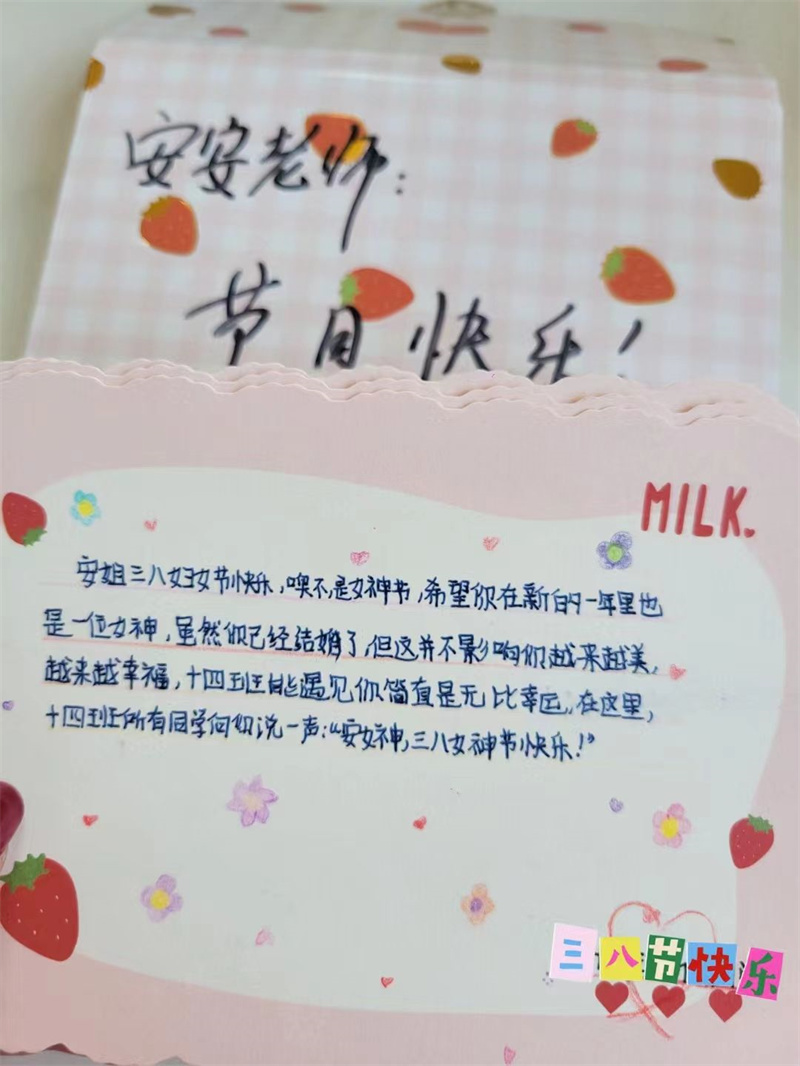 安安老师:
节日快乐!
MILK.
安姐三八妇女节快乐,噢不,是女神节,希望你在新的一年里也
是一位女神,虽然你已经结婚了,但这并不影响你越来越美,
越来越幸福,十四班能遇见你简直是无比幸运,在这里,
十四班所有同学向你说一声:“安女神,三八女神节快乐!”
三八节快乐